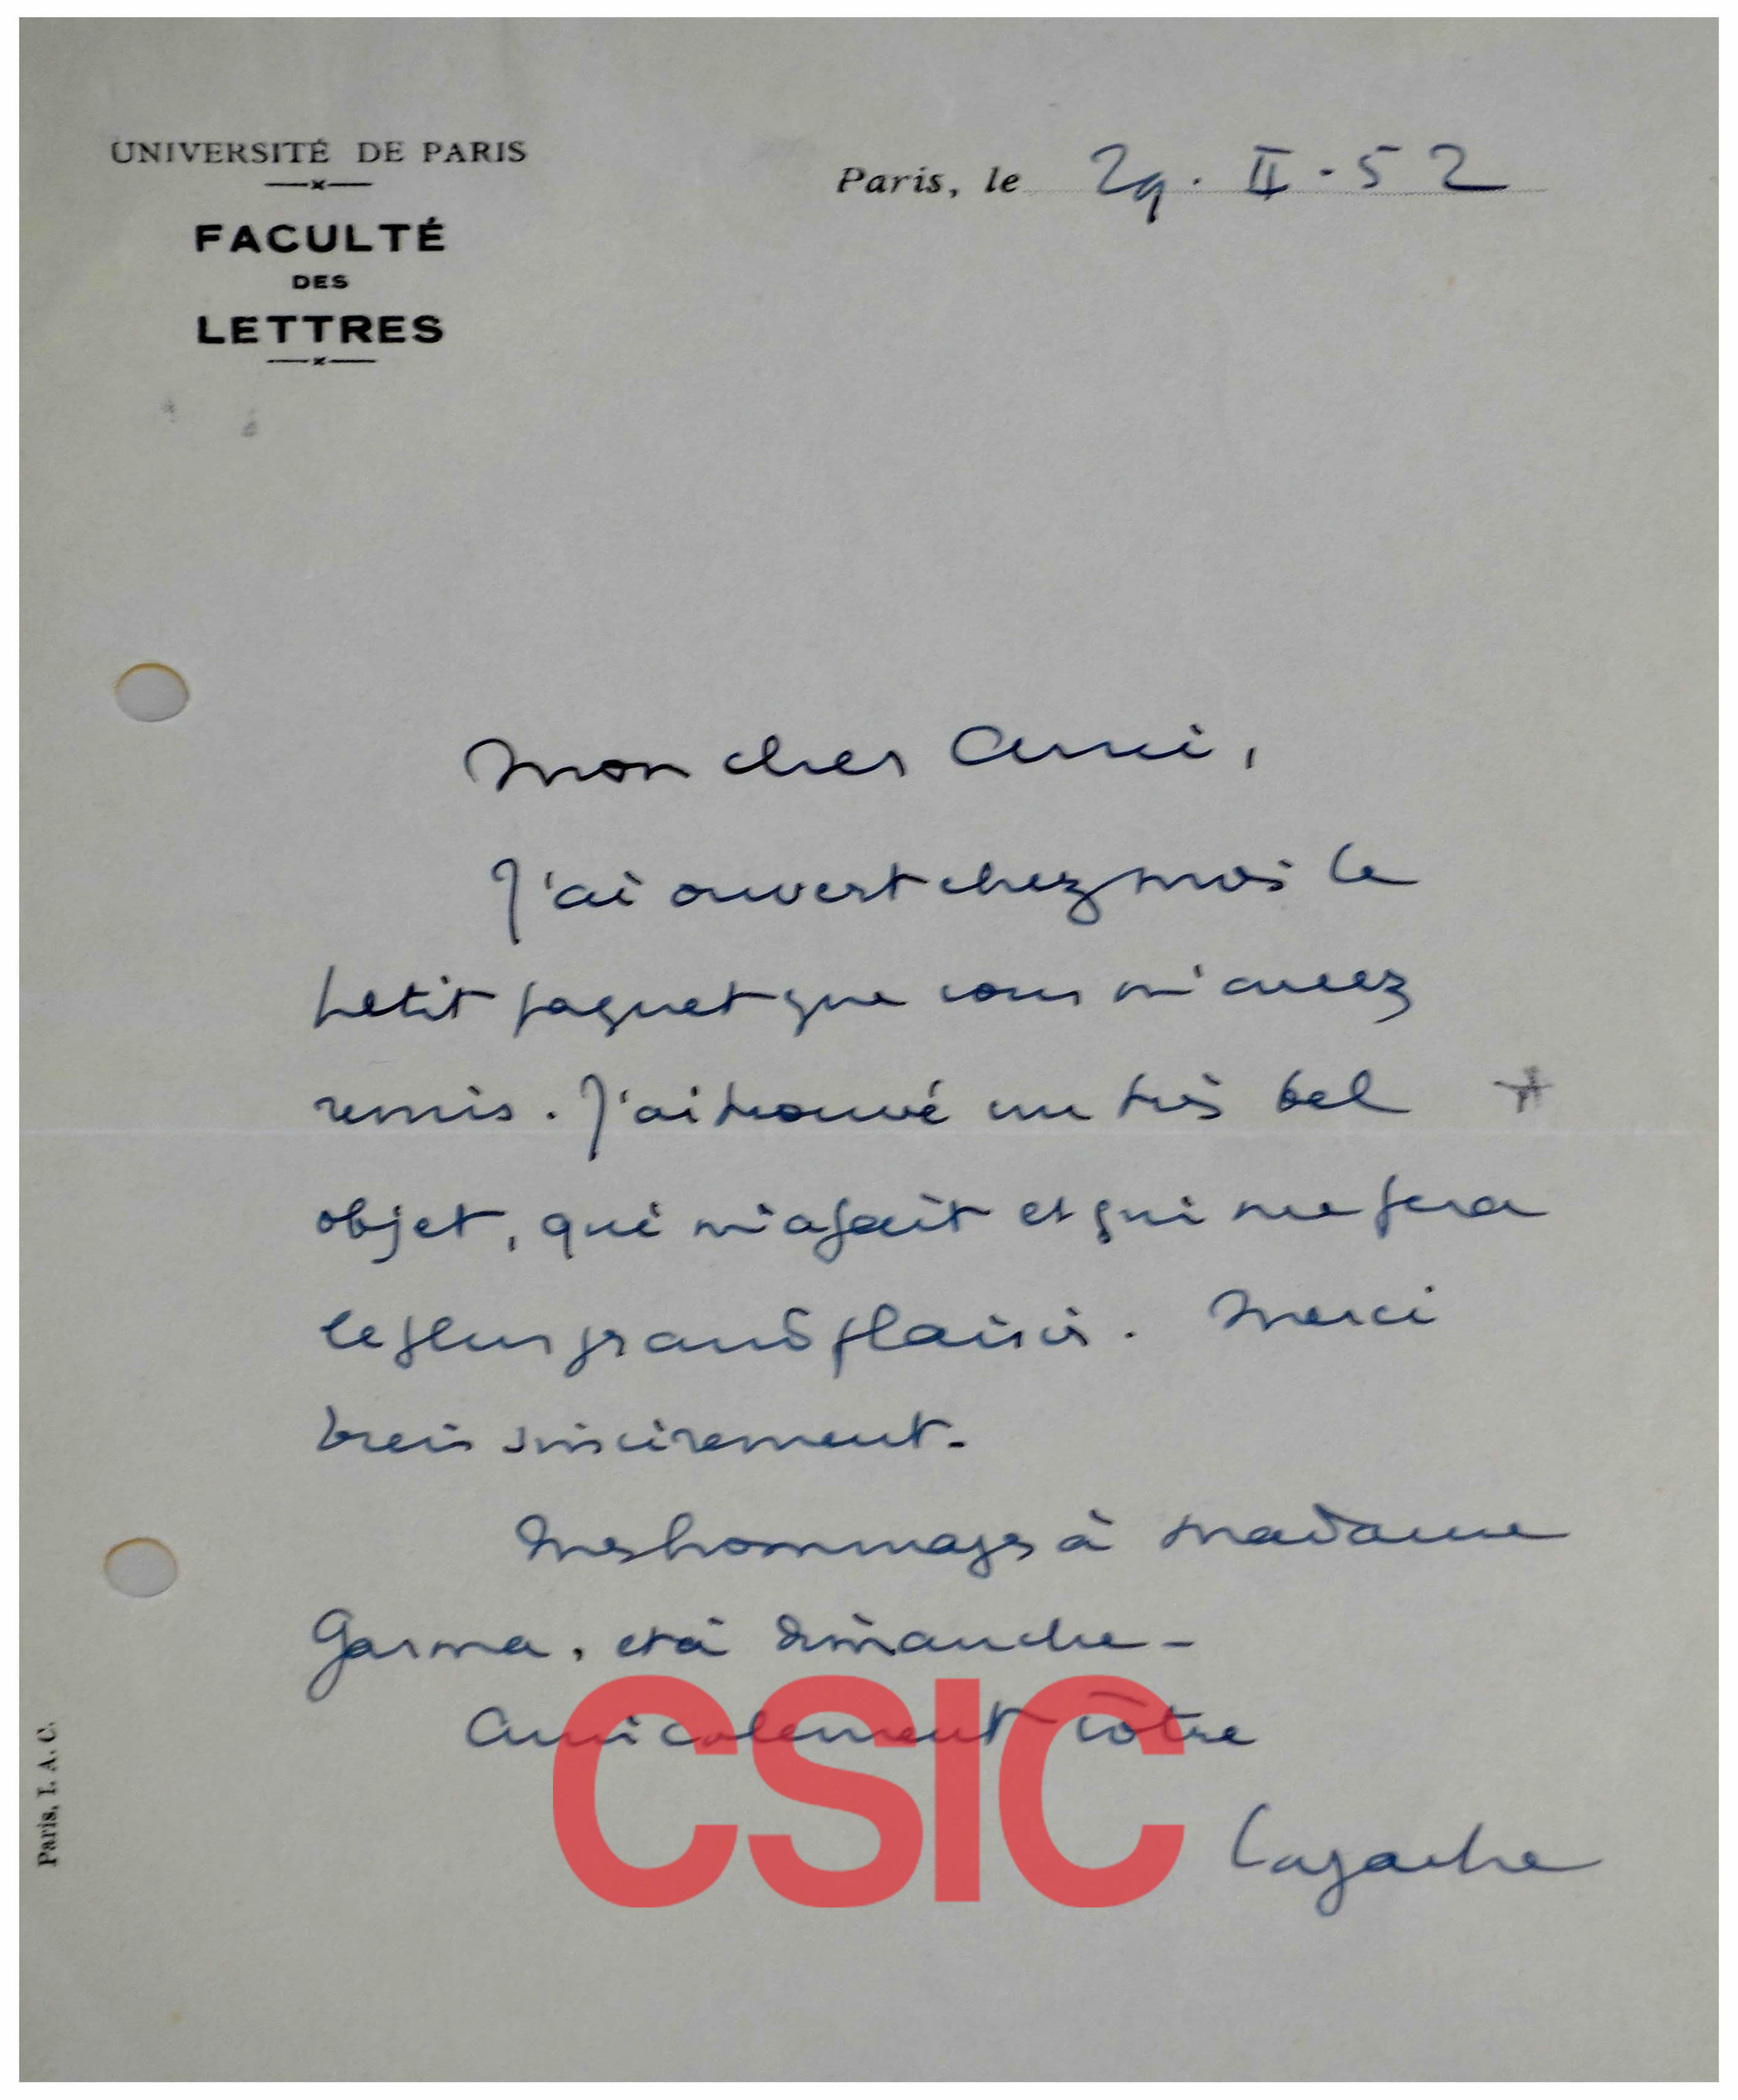 UNIVERSITÉ DE PARIS
FACULTÉ
DES
LETTRES
Paris, le 29. II. 52
Mon cher Ami,
J'ai ouvert chez moi le
petit paquet que vous m'avez
remis. J'ai trouvé un très bel
objet, qui m'a fait et qui me fera
le plus grand plaisir. Merci
bien sincèrement.
Mes hommages à Madame
Garma, et à dimanche -
Amicalement vôtre
Lagache
CSIC
Paris, I. A. C.